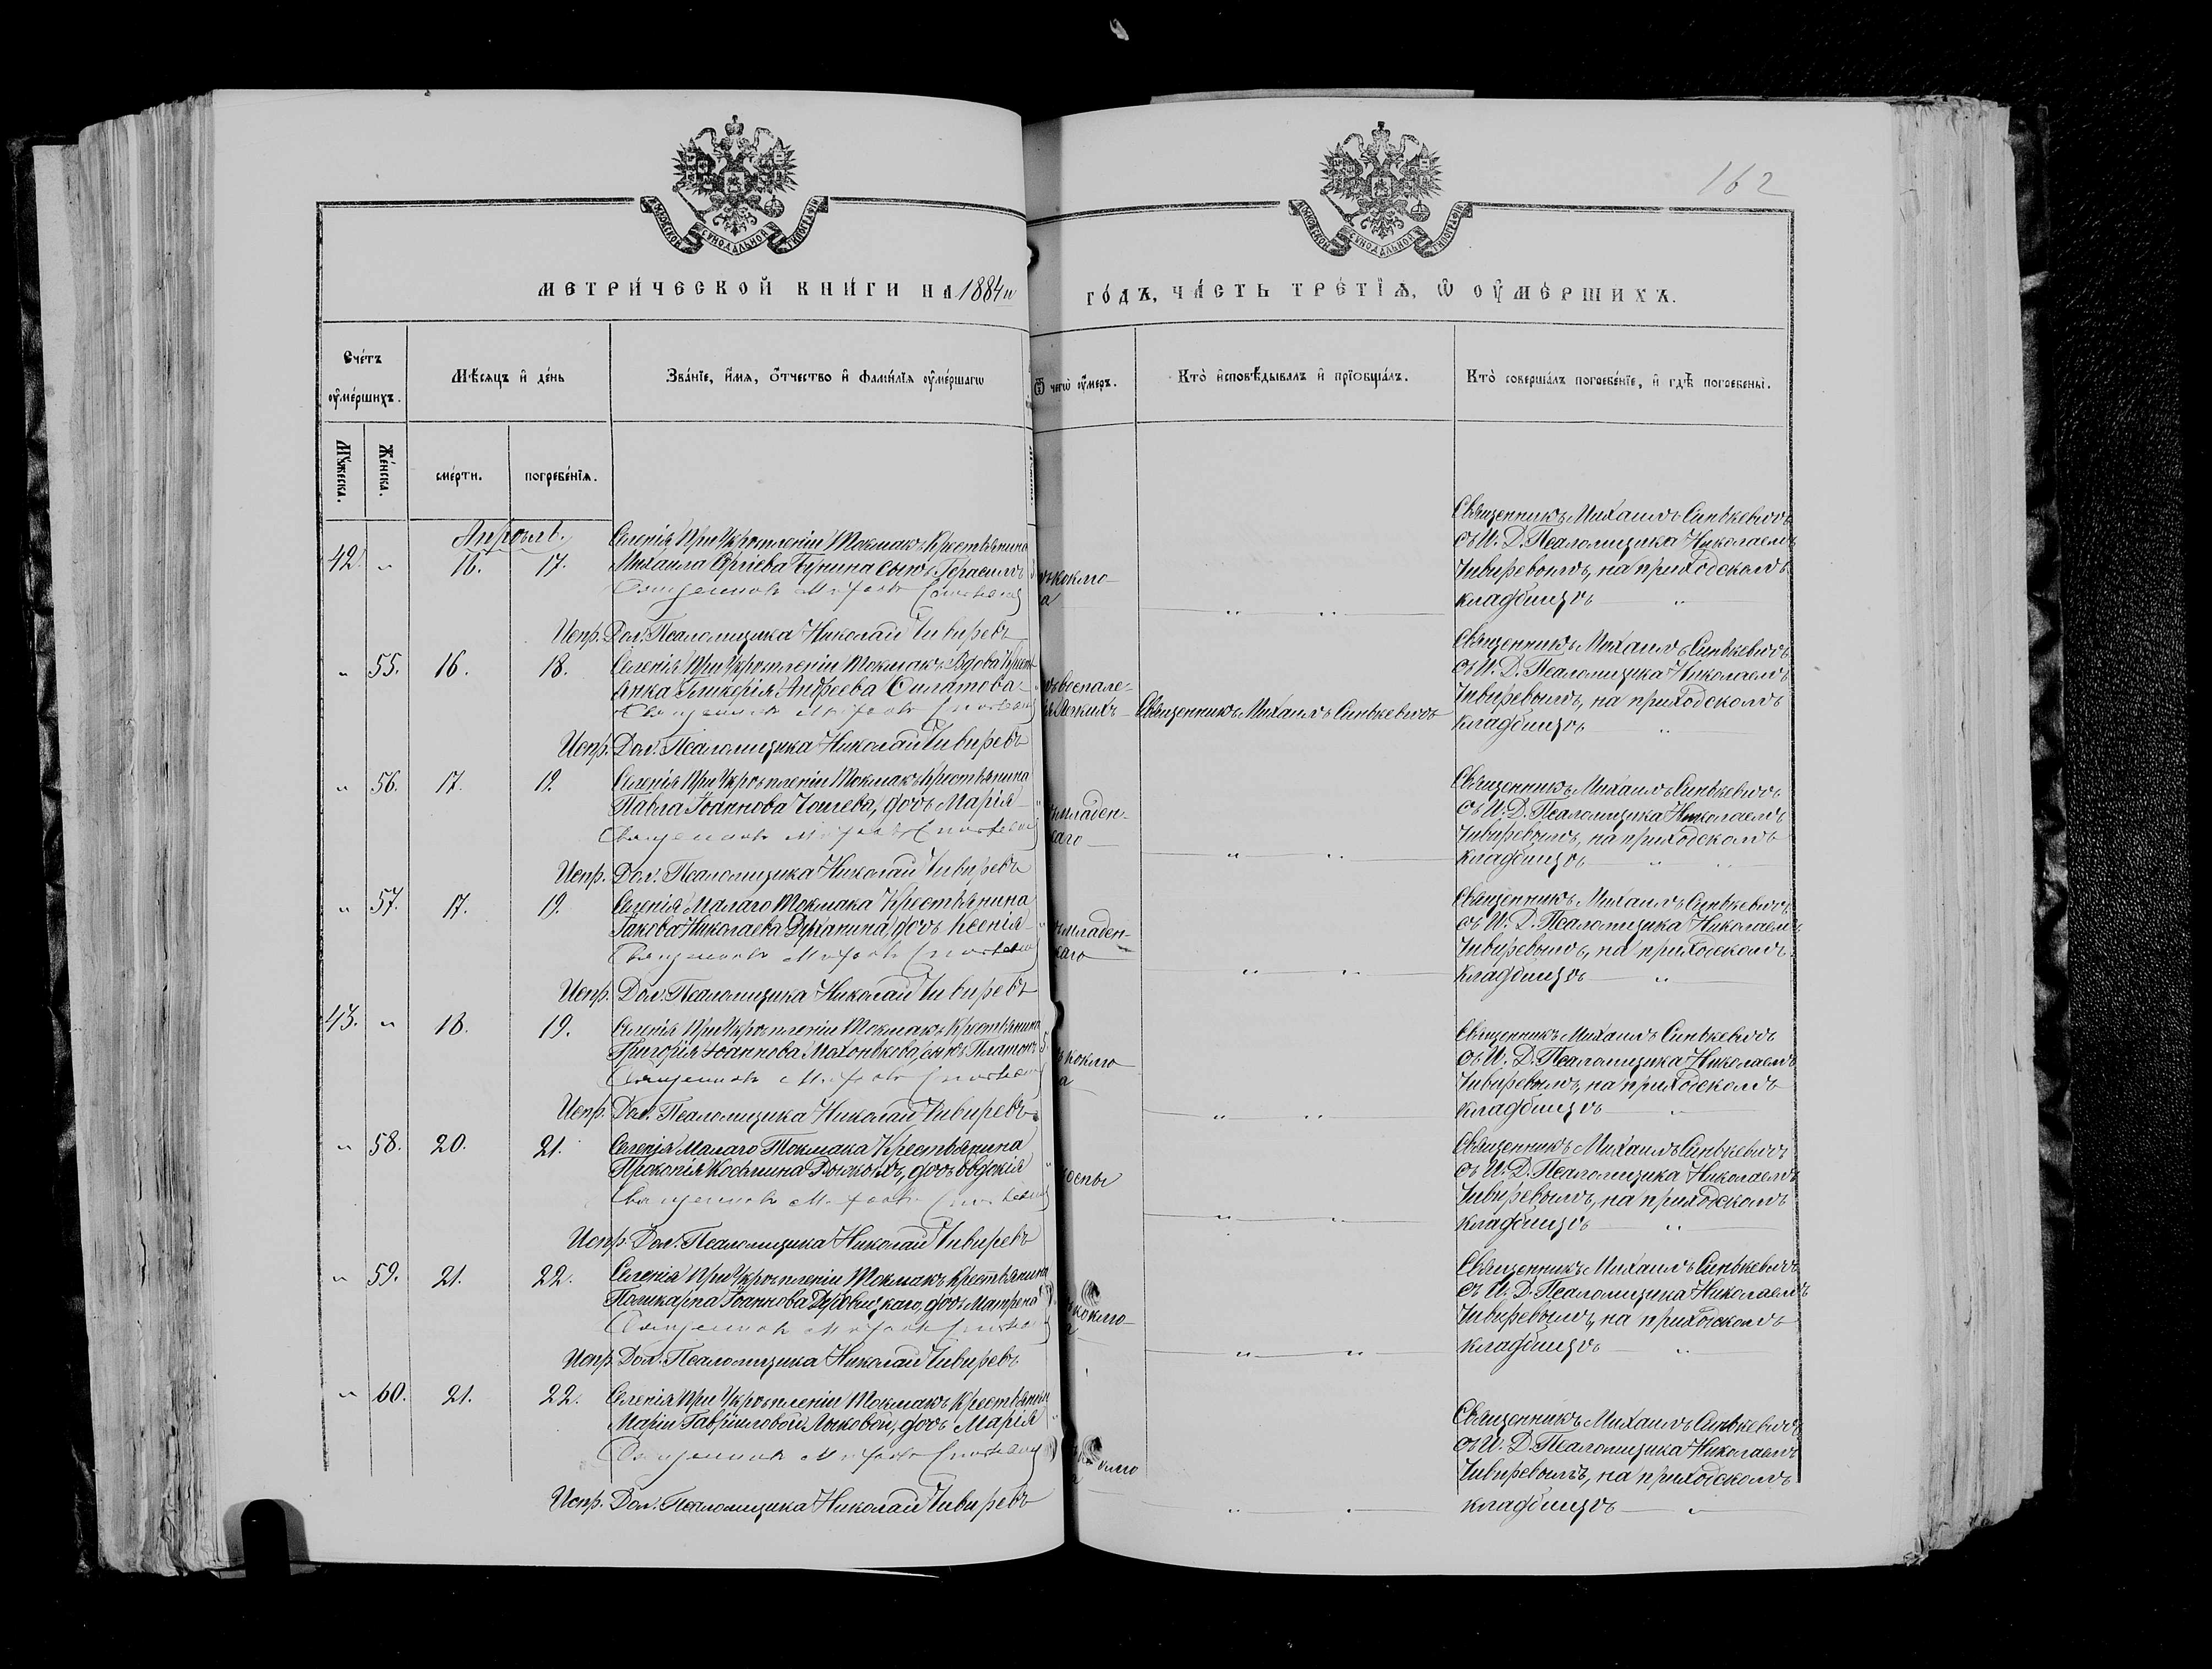 162
МОСКОВСКОЙ СѴНОДАЛЬНОЙ ТИПОГРАФІИ
МОСКОВСКОЙ СѴНОДАЛЬНОЙ ТИПОГРАФІИ
МЕТРИ́ЧЕСКОЙ КНИ́ГИ НА 1884й
ГО́ДЪ, ЧА́СТЬ ТРЕ́ТІѦ, Ѿ ОУ҆МЕ́РШИХЪ.
Сче́тъ оу҆ме́ршихъ.
Мѣ́сяцъ и҆ де́нь
Зва́ніе, и҆́мя, ѻ҆́тчество и҆ фамі́лія оу҆ме́ршагѡ
Ѿ чегѡ̀ оу҆́меръ.
Кто̀ и҆сповѣ́дывалъ и҆ прїѻбща́лъ.
Кто̀ соверша́лъ погребе́нїе, и҆ гдѣ̀ погребены̀.
Мꙋ́жеска.
Же́нска.
сме́рти.
погребе́нїя.
Апрѣль.
42. " 16. 17.
Селенія при укрѣпленіи Токмакъ Крестьянина
Михаила Сергіева Бунина сынъ Герасимъ
Священникъ Михаилъ Синькевичъ
Испр. Дол. Псаломщика Николай Чивиревъ
коклю-
Священникъ Михаилъ Синькевичъ
съ И. Д. Псаломщика Николаемъ
Чивиревымъ, на приходскомъ
кладбищѣ "
" 55. 16. 18.
Селенія при укрѣпленіи Токмакъ Вдова Крест
янка Гликерія Андреева Филатова
Священникъ Михаилъ Синькевичъ
Испр. Дол. Псаломщика Николай Чивиревъ
воспале-
легкихъ
Священникъ Михаилъ Синькевичъ
Священникъ Михаилъ Синькевичъ
съ И. Д. Псаломщика Николаемъ
Чивиревымъ, на приходскомъ
кладбищѣ "
" 56. 17. 19.
Селенія при укрѣпленіи Токмакъ Крестьянина
Павла Іоаннова дочь Марія
Священникъ Михаилъ Синькевичъ
Испр. Дол. Псаломщика Николай Чивиревъ
младен-
каго
Священникъ Михаилъ Синькевичъ
съ И. Д. Псаломщика Николаемъ
Чивиревымъ, на приходскомъ
кладбищѣ "
" 57. 17. 19.
Селенія Малаго Токмака Крестьянина
Іакова Николаева Духанина дочь Ксенія
Священникъ Михаилъ Синькевичъ
Испр. Дол. Псаломщика Николай Чивиревъ
младен-
каго
Священникъ Михаилъ Синькевичъ
съ И. Д. Псаломщика Николаемъ
Чивиревымъ, на приходскомъ
кладбищѣ "
43. " 18. 19.
Селенія при укрѣпленіи Токмакъ Крестьянина
Григорія Іоаннова Махонькова сынъ Платонъ 5.
Священникъ Михаилъ Синькевичъ
Испр. Дол. Псаломщика Николай Чивиревъ
коклю
Священникъ Михаилъ Синькевичъ
съ И. Д. Псаломщика Николаемъ
Чивиревымъ, на приходскомъ
кладбищѣ "
" 58. 20. 21.
Селенія Малаго Токмака Крестьянина
Прокопія Косьмина дочь Евдокія
Священникъ Михаилъ Синькевичъ
Испр. Дол. Псаломщика Николай Чивиревъ
оспы
Священникъ Михаилъ Синькевичъ
съ И. Д. Псаломщика Николаемъ
Чивиревымъ, на приходскомъ
кладбищѣ "
" 59. 21. 22.
Селенія при укрѣпленіи Токмакъ Крестьянина
Поликарпа Іоаннова дочь Матрена
Священникъ Михаилъ Синькевичъ
Испр. Дол. Псаломщика Николай Чивиревъ
коклю-
Священникъ Михаилъ Синькевичъ
съ И. Д. Псаломщика Николаемъ
Чивиревымъ, на приходскомъ
кладбищѣ "
" 60. 21. 22.
Селенія при укрѣпленіи Токмакъ Крестьянки
Маріи Гавріиловой Лыковой, дочь Марія
Священникъ Михаилъ Синькевичъ
Испр. Дол. Псаломщика Николай Чивиревъ
Священникъ Михаилъ Синькевичъ
съ И. Д. Псаломщика Николаемъ
Чивиревымъ, на приходскомъ
кладбищѣ "